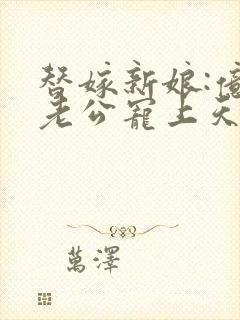 替嫁新娘:億
老公寵上天
萬澤